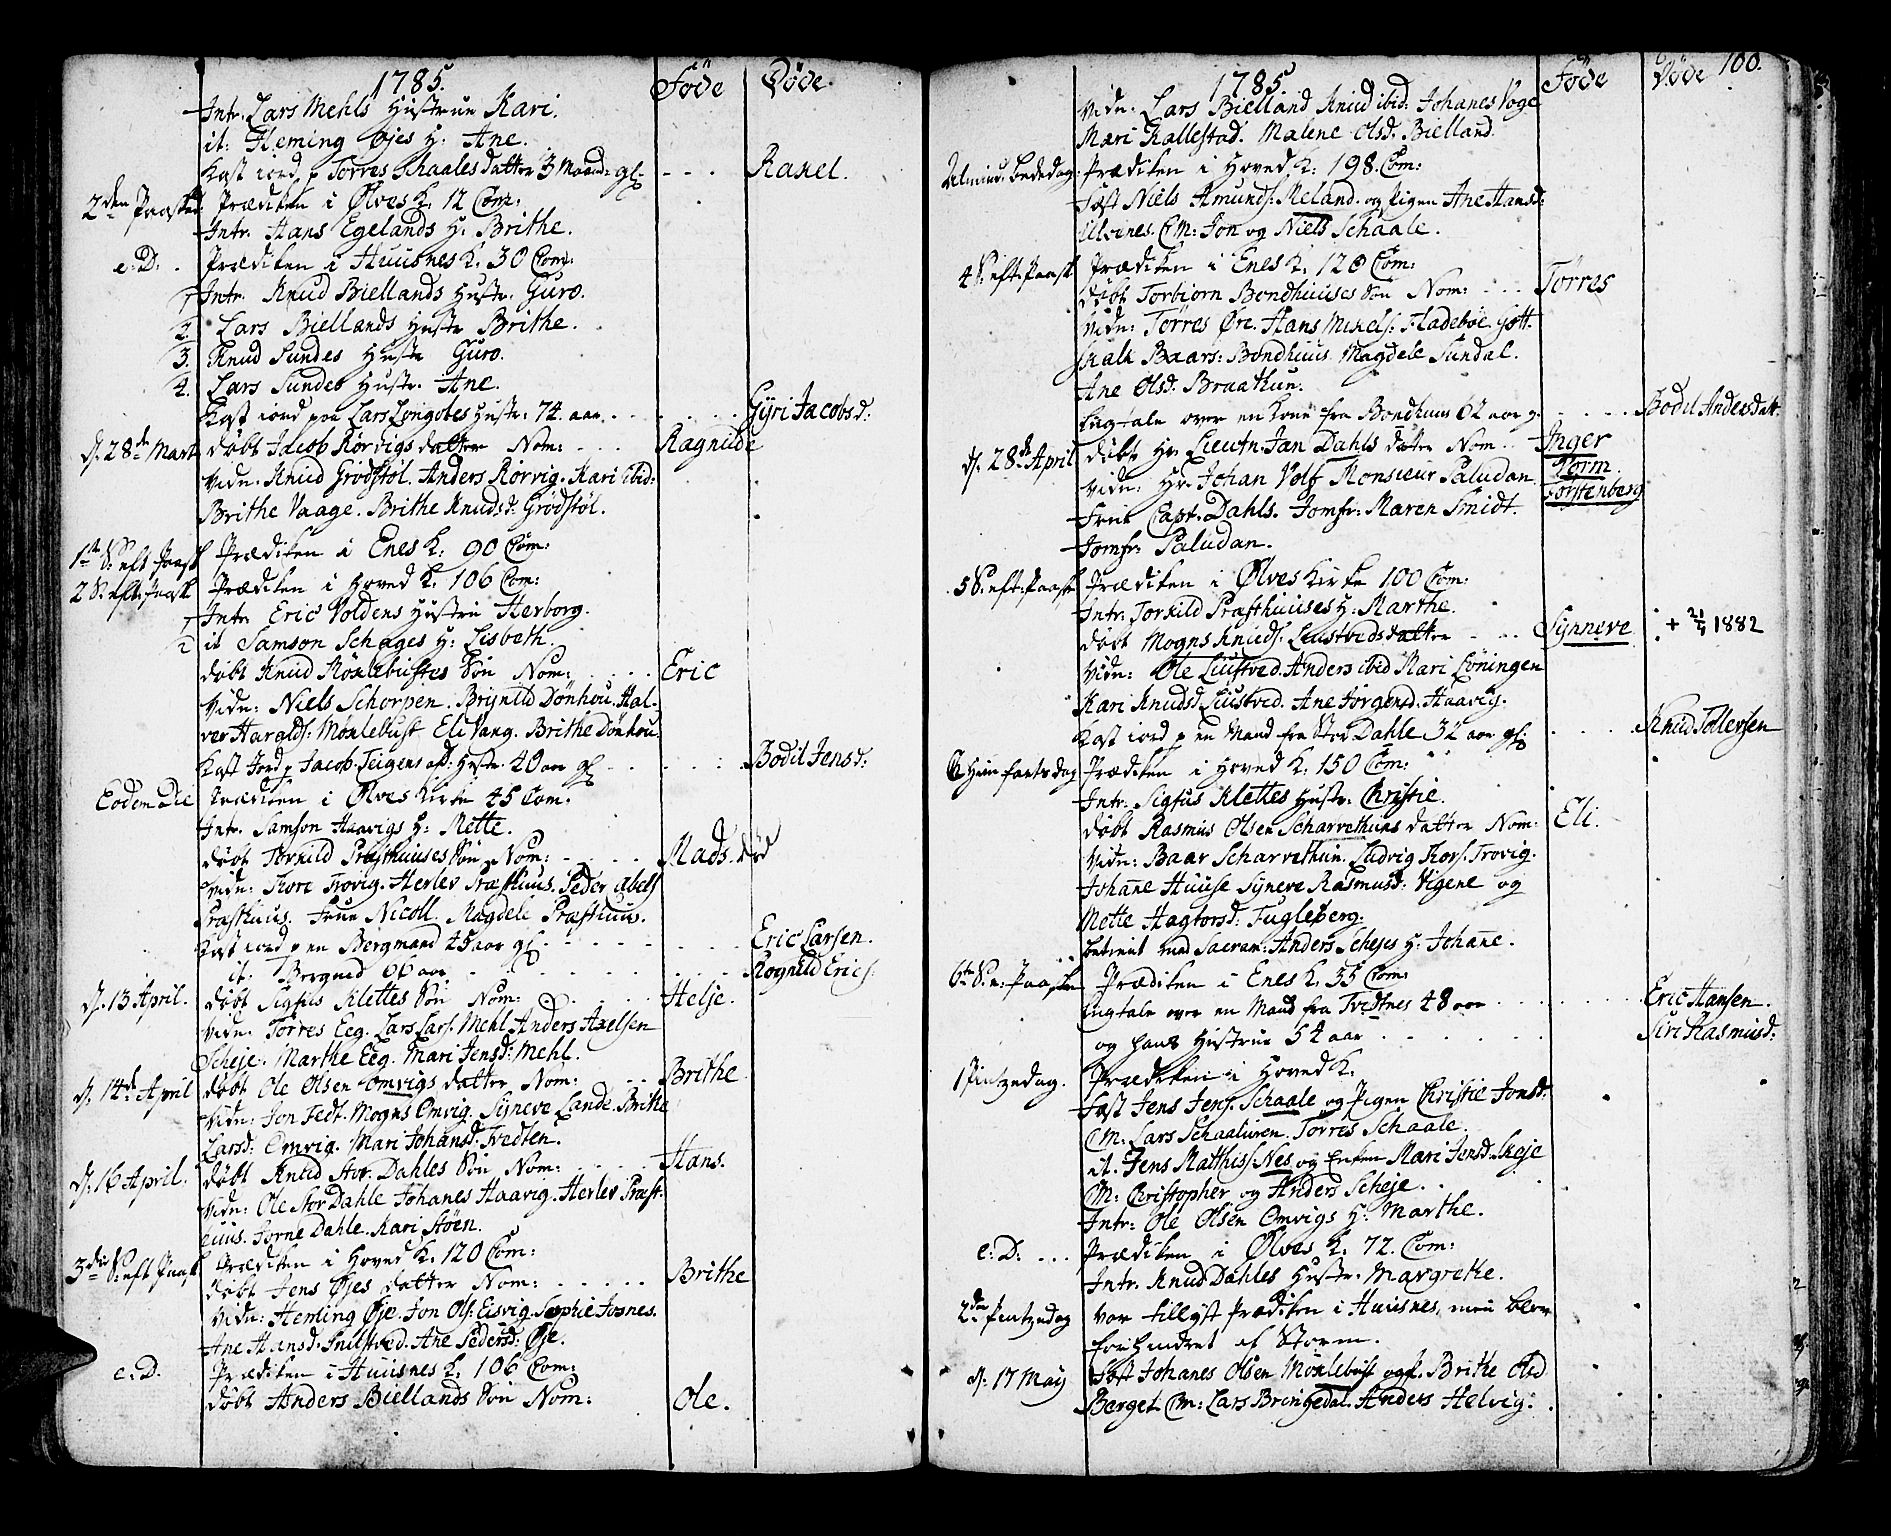 1785. Föde Döde.
Intr. Lars Mehls Hustrue Kari.
it: Heming Øjes H: Ane.
Kast iord p Torres Skaales datter 3 Maand: gl: - - - Raxel.
2den Paaskd. Prædiken i Ølves K. 12 Com:
Intr. Hans Egelands H: Brithe.
e: D: Prædiken i Huusnes K. 30 Com:
1 Intr. Knud Biellands Hustr. Guro.
2. Lars Biellands Hustr Brithe.
3. Knud Sundes Hustr Guro.
4. Lars Sundes Hustr. Ane.
Kast iord paa Lars Hustr: 74. aar. Gÿri Jacobsd:
d. 28de Mart døbt Jacob Rörvigs datter Nom: Ragnilde
Vidn. Knud Grødstøl. Anders Rörvig. Kari ibid:
Brithe Vaage. Brithe Knudsd: Grödstöl.
1te S: eft Paask Prædiken i Enes K. 90 Com:
2 S: eft: Paask Prædiken i Hoved K. 106 Com:
1 Intr Eric Voldens Hustru Herborg.
2 it Samson Schages H: Lisbeth.
døbt Knud Möxlebustes Sön Nom: Eric
Vidn: Niels Schorpen. Brÿnild Dönhou. Hal-
vor Haralds: Möxlebust Eli Vang. Brithe Dönhou.
Kast Jord p Jacob Teigens afd: Hustr. 40 aar gl Bodil Jensd:
Eodem Die Prædiken i Ølves Kirke 45 Com:
Intr. Samson Haavigs H: Mette.
döbt Torkild Præsthuuses Sön Nom: Mads. död
Vidn: Tore Trovig. Herlev Præsthuus. Peder Abels
Præsthuus. Frue Nicoll. Magdeli Præsthuus.
Kast iord p en Bergmand 45 aar gl Eric Larsen.
it. 66 aar Rognild Erics:
d. 13 April. døbt Sigfus Klettes Sön Nom: Helje.
Vidn: Torres Eeg. Lars Lars: Mehl Anders Axelsen
Scheje. Marthe Eeg. Mari Jensd: Mehl.
d. 14de April døbt Ole Olsen Omvigs datter Nom: Brithe
Vidn: Jon Tedt. Mogns Omvig. Sÿneve Lande. Brithe
Larsd: Omvig. Mari Johansd: Tvedten.
d. 16 April. døbt Knud Stor Dahles Sön Nom: Hans.
Vidn: Ole Stor Dahle Johanes Haavig. Herlev Præst-
huus. Jorne Dahle. Kari Støen.
3die S: eft Paask Prædiken i Hoved K: 120 Com:
døbt Jens Øjes datter Nom: Brithe
Vidn: Heming Øje. Jon Ols: Eisvig. Sophie Josnes.
Ane Hansd: Snilstved. Ane Pedersd: Øje.
e: D. Prædiken i Huusnes K: 106 Com:
døbt Anders Biellands Sön Nom: Ole.
1785. Föde Döde 100.
Vidn. Lars Bielland Knud ibid: Johanes Voge
Mari Kallestad. Malene Olsd. Bielland.
Almind: Bededag. Prædiken i Hoved K: 198. Com:
Fæst Niels Amunds: Meland. og Pigen Ane Hansd:
Ulvenes. CM: Jon og Niels Schaale.
4 S: eft: Paask Prædiken i Enes K. 120 Com:
døbt Torbiorn Bondhuuses Sön Nom: Törres
Vidn: Törres Øre. Hans Mikels: Fladebøe. Gott-
skalk Baars: Bondhuus. Magdele Sundal.
Ane Olsd: Braathun.
Ligtale over en Kone fra Bondhuus 62 aar g. Bodil Andersdatt:
d. 28de April døbt Hr Lieutn: Jan Dahls datter Nom Inger
Vidn: Hr. Johan Volf Monsieur Paludan Vorm
Fortenberg
Frue Capt. Dahls. Jomfr: Maren Smidt.
Jomfr: Paludan.
5 S: eft: Paask Prædiken i Ølves Kirke 100 Com:
Intr: Torkild Præsthuuses H: Marthe.
døbt Mogns Knuds: Liustveds datter Sÿnneve + 1882
Vidn: Ole Liustved. Anders ibid Mari Löningen
Kari Knudsd Liustved. Ane Jörgensd. Haavig.
Kast iord p en Mand fra Stor Dahle 32 aar gl: Knud Tollevsen
Himfartsdag Prædiken i Hoved K: 150 Com:
Intr: Sigfus Klettes Hustr: Christie.
døbt Rasmus Olsen Scharvethuns datter Nom: Eli.
Vidn: Baar Scharvethun. Ludvig Tors: Trovig.
Johane Huuse Sÿneve Rasmusd: Vigene og
Mette Hagtorsd: Fugleberg.
betient med Sacram: Anders Schejes H: Johane.
6te S: e: Paaske Prædiken i Enes K. 35 Com:
Ligtale over en Mand fra Tvedtnes 48 aar Eric Hansen.
og hans Hustrue 54 aar Siri Rasmusd:
1 Pintzedag. Prædiken i Hoved K.
Fæst Jens Jens: Schaale og Pigen Christie Jonsd:
CM: Lars Schaaluren. Torres Schaale.
it. Jens Matthiss: Nes og Enken Mari Jensd. Skeje
CM: Christopher og Anders Scheje.
Intr: Ole Olsen Omvigs H: Marthe.
e: D: Prædiken i Ølves K: 72. Com:
Intr: Knud Dahles Hustr: Margrethe.
2den Pintzedag var tillyst Prædiken i Huusnes, men blev
forhindret af Storm.
d. 17 Maÿ Fæst Johanes Olsen Möxlebust og P. Brithe Olsd
Berget CM: Lars Bringedal. Anders Helvig: